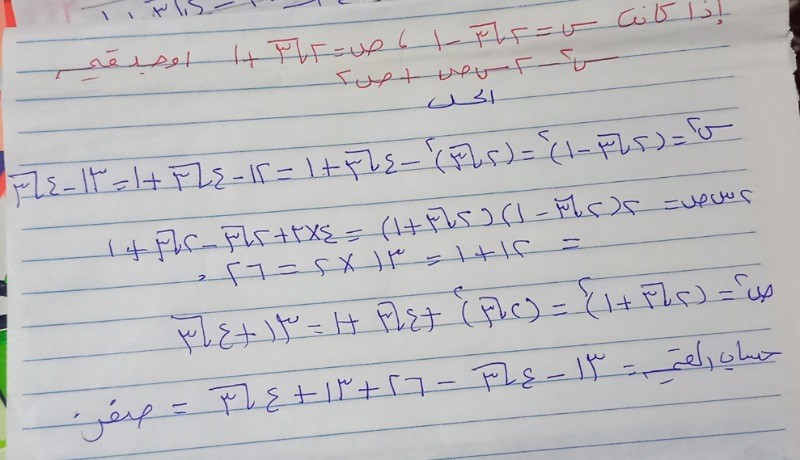 إذا كانت س = ٢√٣ - ١ ، ص = ٢√٣ + ١ اوجد قيمة
س٢ - ٢ س ص + ص٢
الحل
س٢ = (٢√٣ - ١)٢ = (٢√٣)٢ - ٤√٣ + ١ = ١٢ - ٤√٣ + ١ = ١٣ - ٤√٣
٢ س ص = ٢(٢√٣ - ١)(٢√٣ + ١) = ٤×٣ + ٢√٣ - ٢√٣ + ١
= ١٢ + ١ = ١٣ × ٢ = ٢٦ ،
ص٢ = (٢√٣ + ١)٢ = (٢√٣)٢ + ٤√٣ + ١ = ١٣ + ٤√٣
حساب القيمة = ١٣ - ٤√٣ - ٢٦ + ١٣ + ٤√٣ = صفر